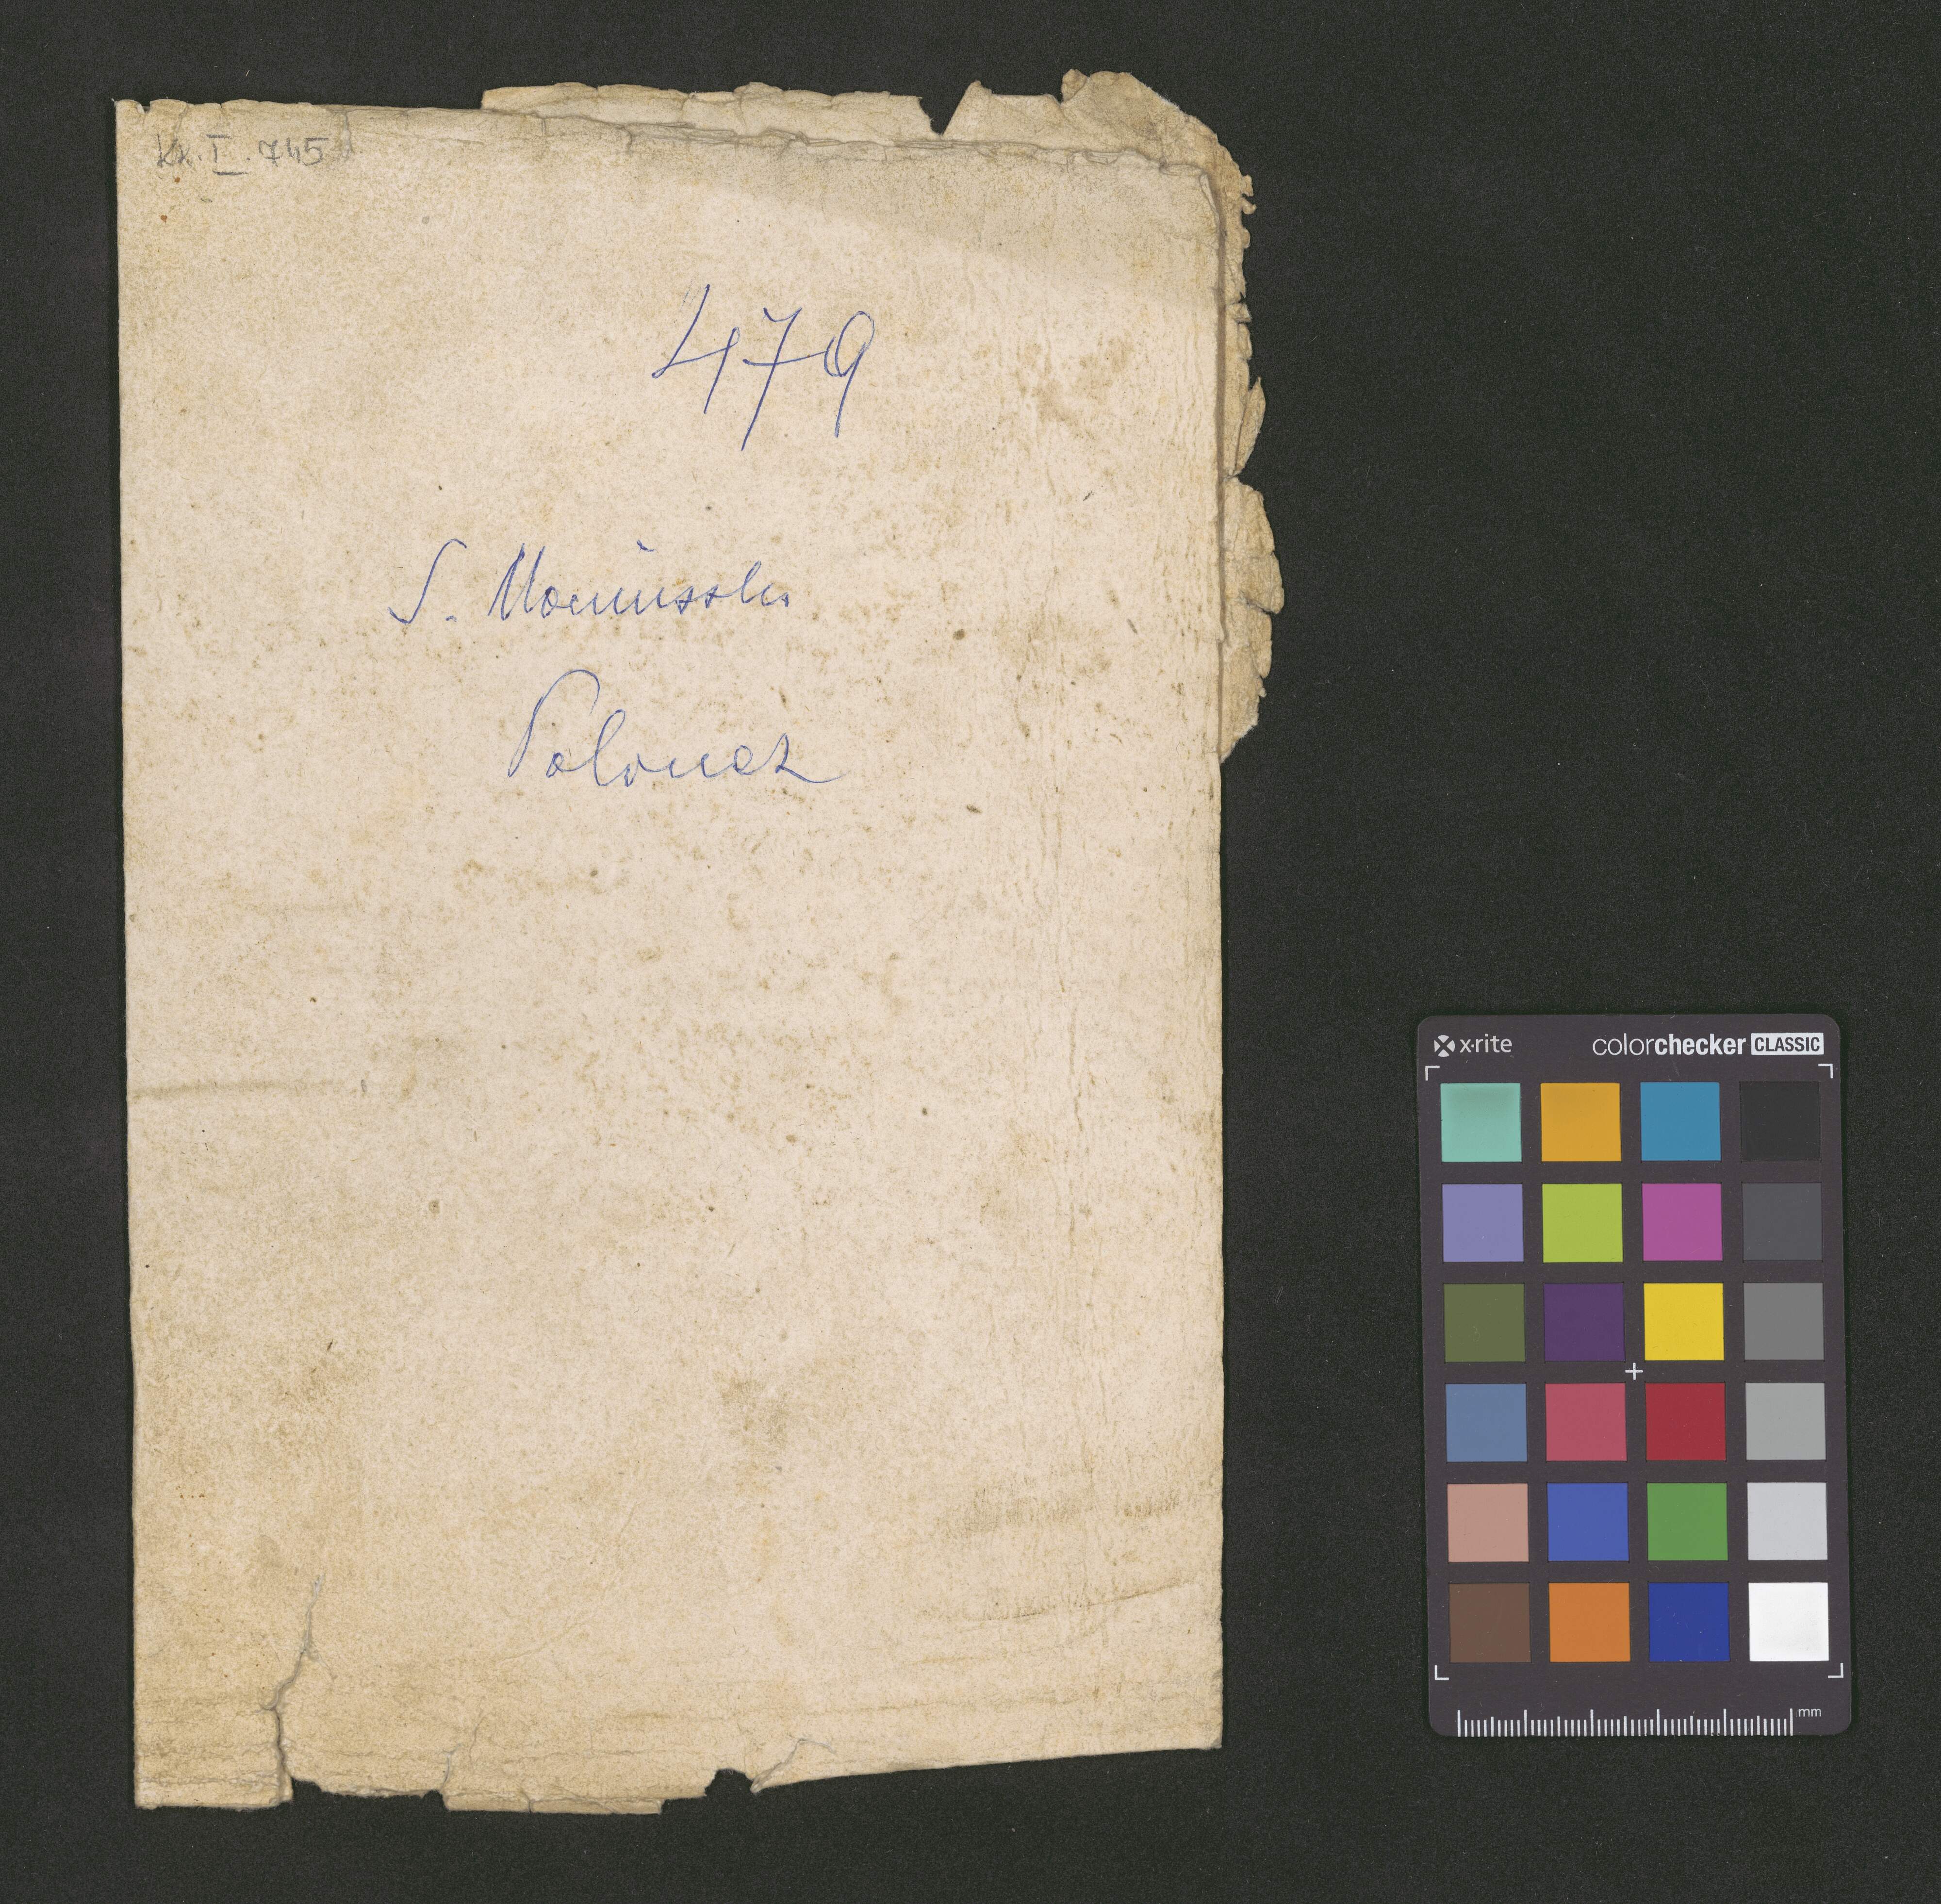 Kk. I. 745
479
S. Moniuszko
Polonez
x·rite
colorchecker CLASSIC
mm